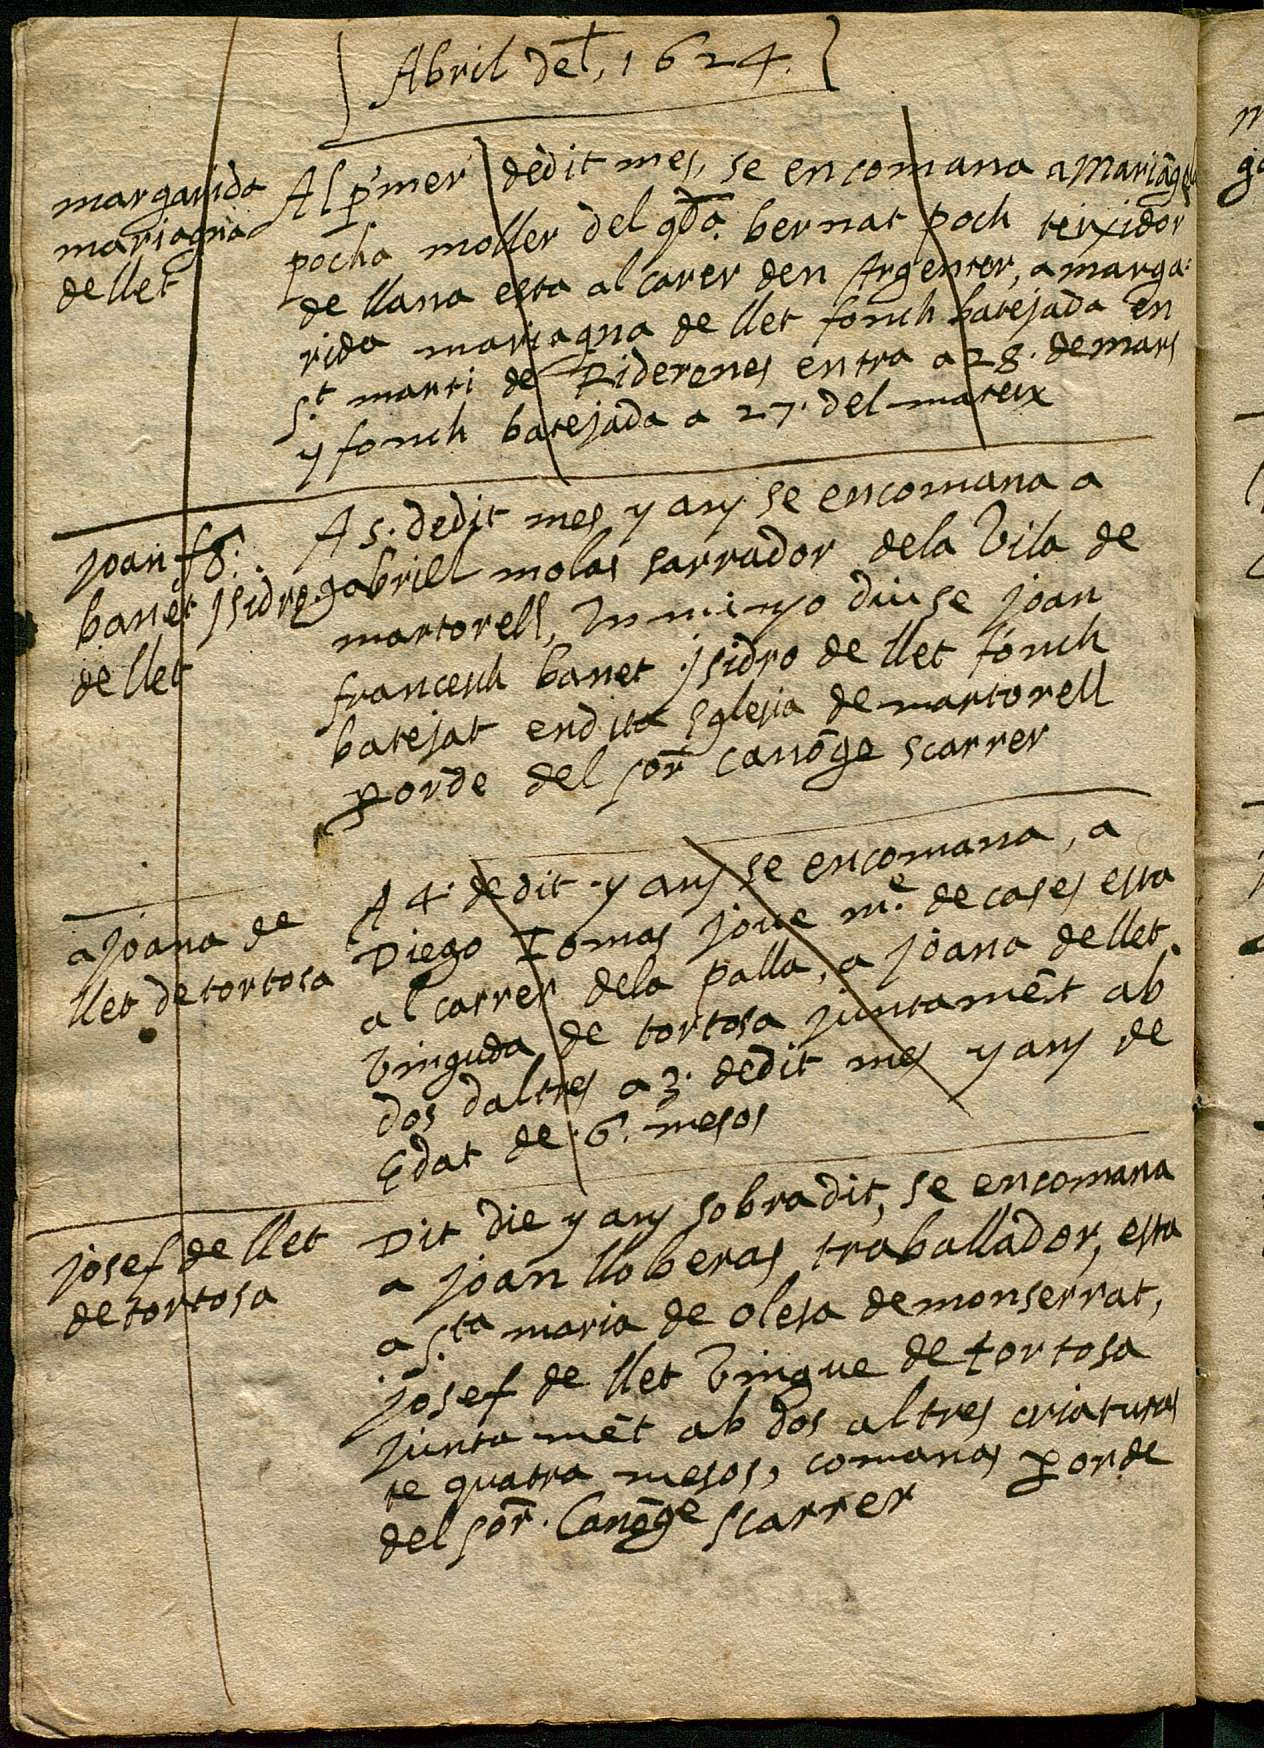 Abril del, 1624.
margarida
mariagna
de llet
Al pmer de dit mes, se encomana a Mariãg
pocha moller del qdº. bernat poch teixidor
de llana esta al carer den Argenter, a marga:
rida mariagna de llet fonch batejada en
St. marti de Riderenes entra a 28. de mars
y fonch batejada a 27. del mateix
joan fs.
banet jsidro
de llet
A 5. de dit mes y any se encomana a
gabriel molas sarrador dela Vila de
martorell, un minyo diuse joan
francesch banet jsidro de llet fonch
batejat en dita sglesia de martorell
p orde del sor canõge scarrer
a joana de
llet de tortosa
A 4. de dit y any se encomana, a
Diego Tomas joue me. de cases esta
al carrer dela palla, a joana de llet
Vinguda de tortosa juntamẽt ab
dos daltres a 3. de dit mes y any de
Edat de .6. mesos
josef de llet
de tortosa
Dit die y any sobradit, se encomana
a joan lloberas traballador, esta
a Sta maria de olesa de monserrat,
josef de llet Vingue de tortosa
junta mẽt ab dos altres criaturas
te quatra mesos, comanas p orde
del sor. Canõge scarrer